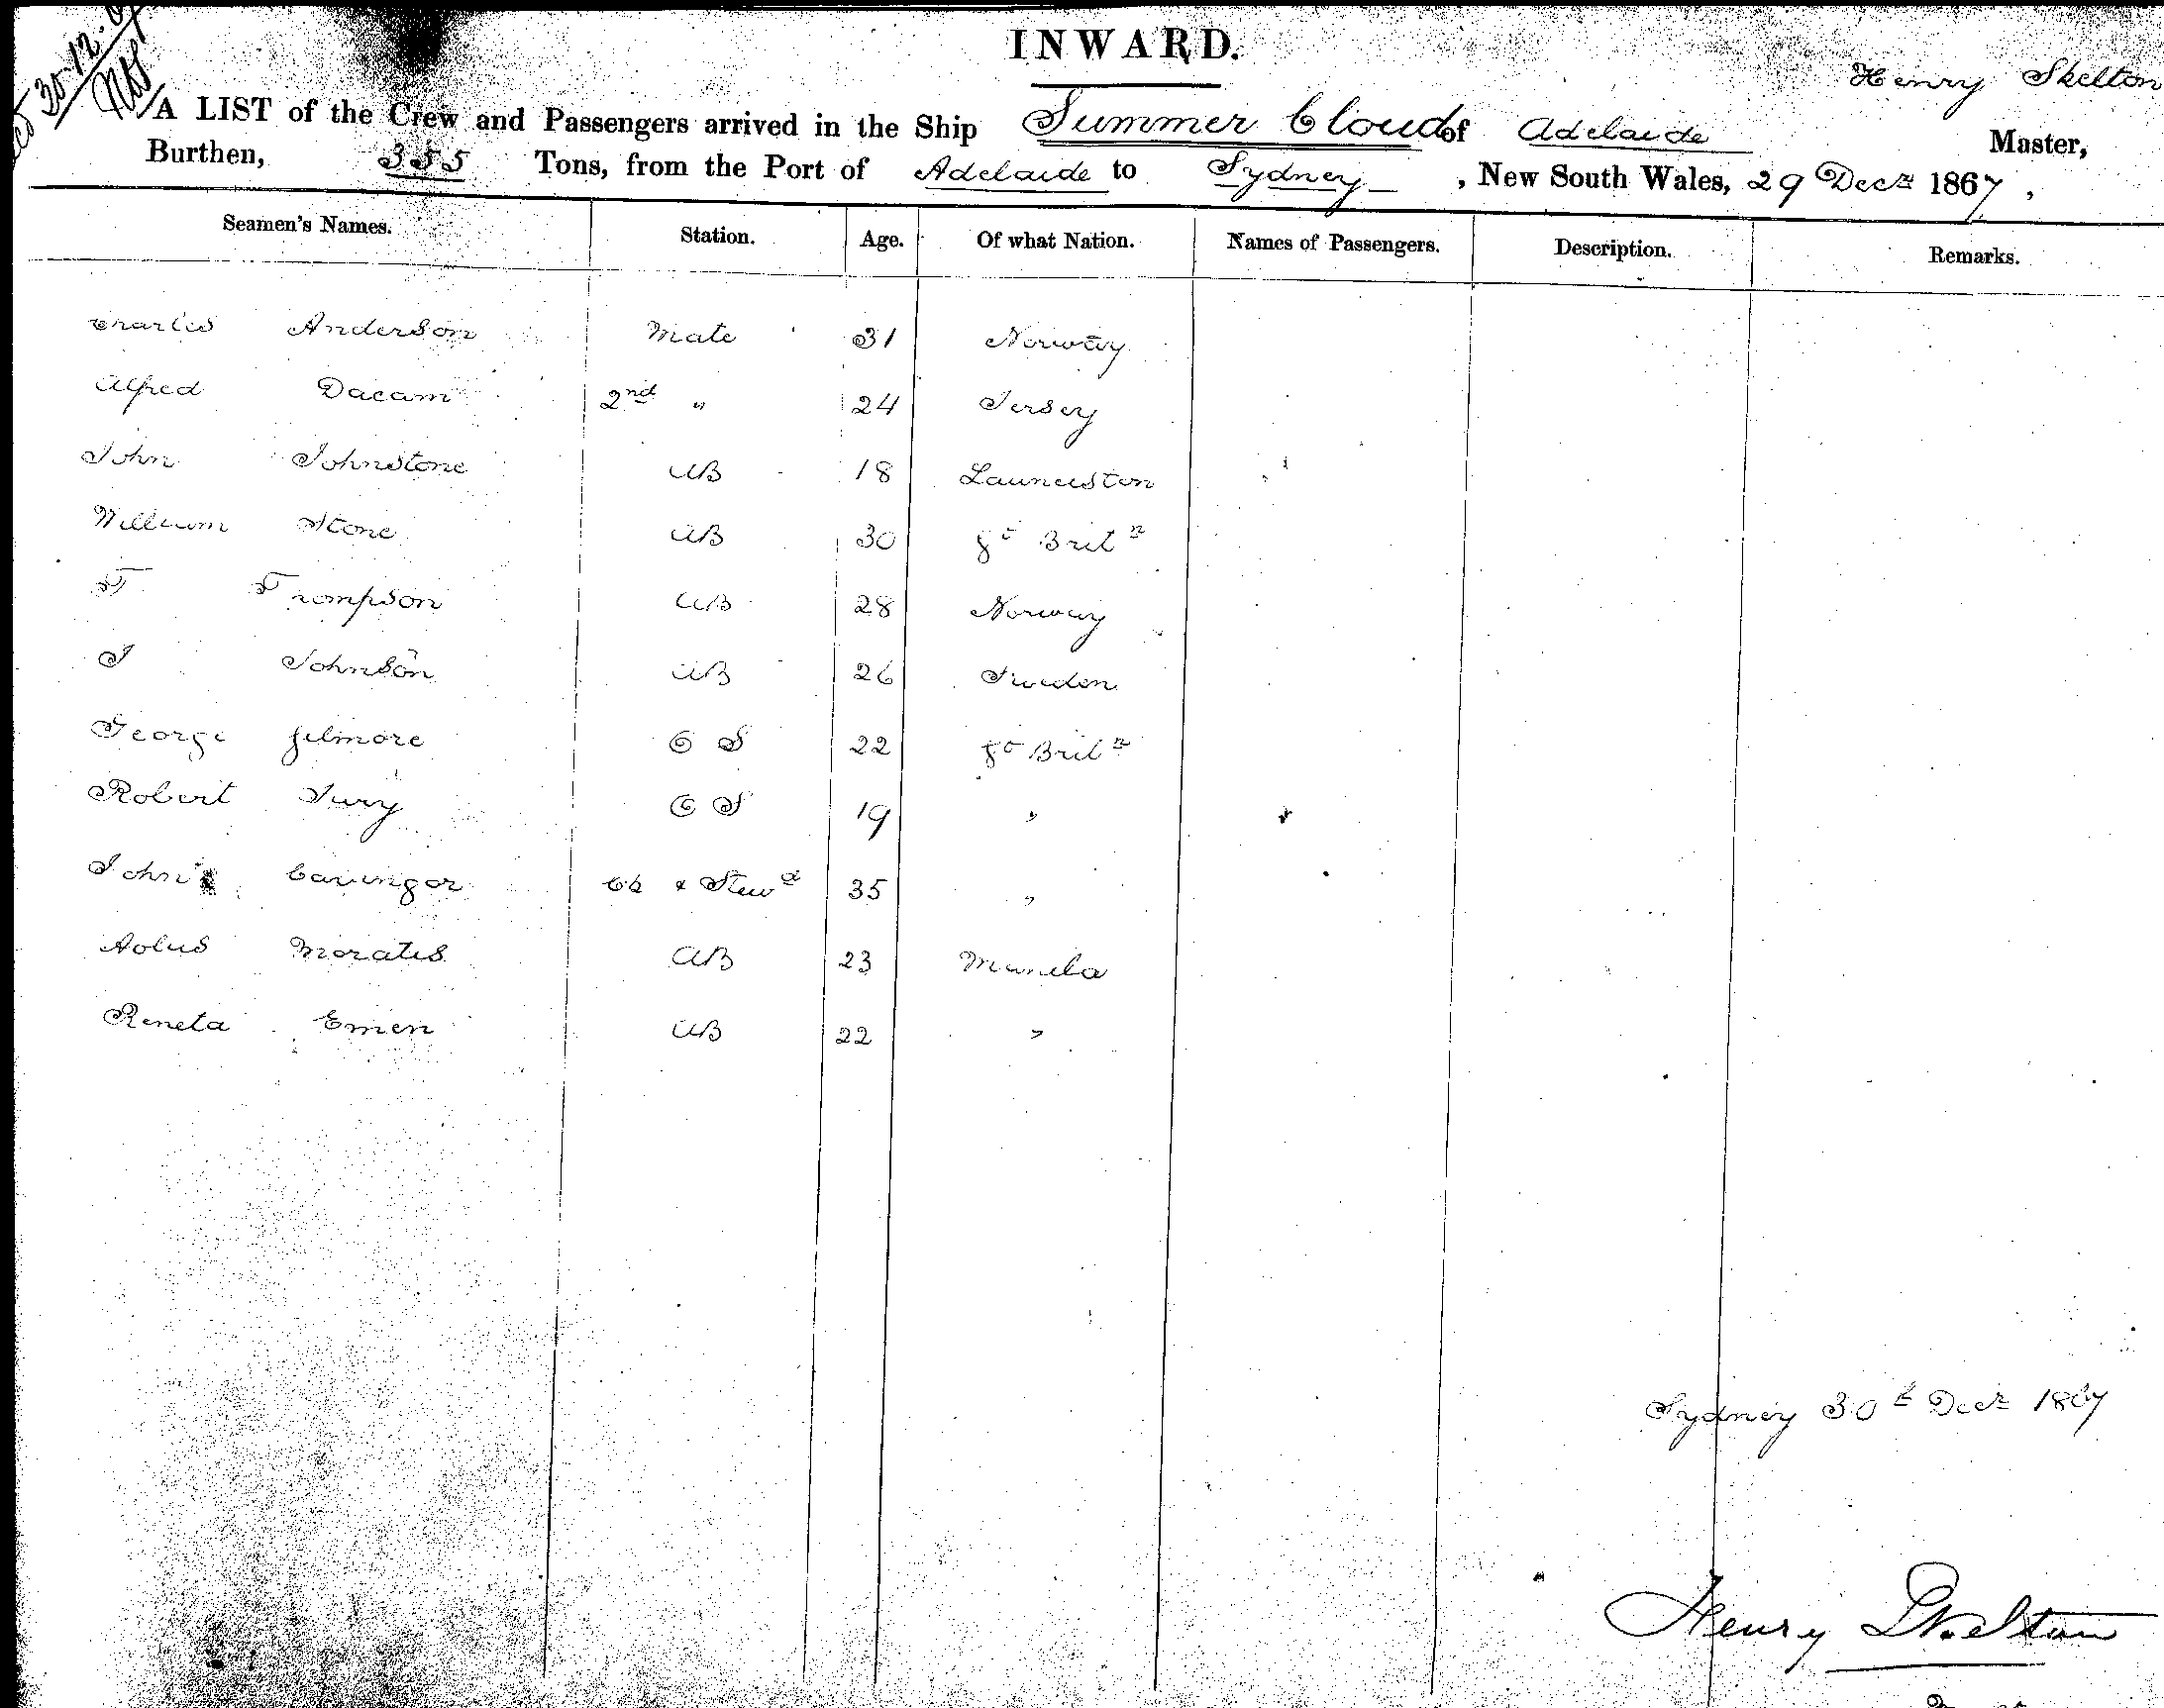 30.12.
INWARD.
Henry Skelton
A LIST of the Crew and Passengers arrived in the Ship Summer Cloud of Adelaide Master,
Burthen, 355 Tons, from the Port of Adelaide to Sydney, New South Wales, 29 Decr 1867,
Seamen's Names. Station. Age. Of what Nation. Names of Passengers. Description. Remarks.
Charles Anderson Mate 31 Norway
Alfred Dacam 2nd " 24 Jersey
John Johnstone AB 18 Launceston
William Stone AB 30 Gt Britn
T Thompson AB 28 Norway
J Johnson AB 26 Sweden
George Gilmore O S 22 Gt Britn
Robert Jury O S 19 "
John Cavingor Ck & Stewd 35 "
Aolus Morates AB 23 Manila
Reneta Emen AB 22 "
Sydney 30t Decr 1867
Henry Skelton